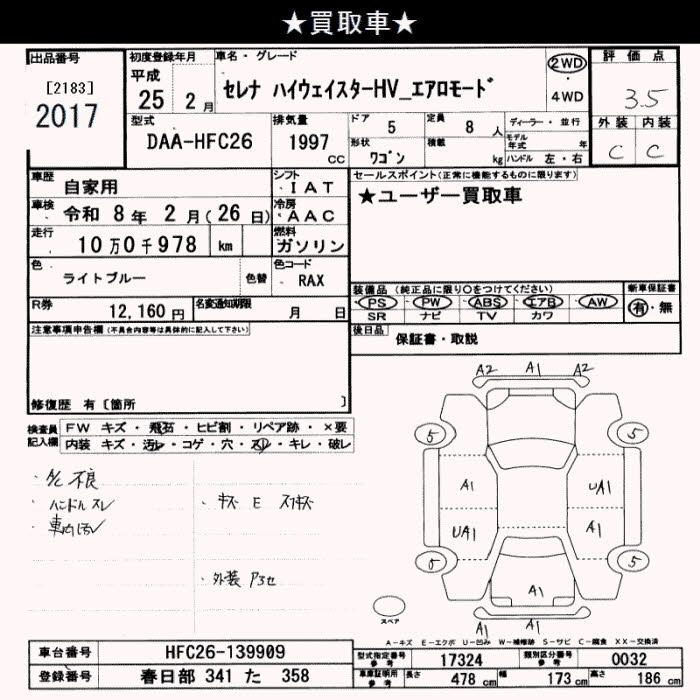 ★買取車★
出品番号
[2183]
2017
初度登録年月
平成
25 2月
車名・グレード
セレナ ハイウェイスターHV_エアロモード
2WD
4WD
評価点
3.5
外装 内装
C C
型式
DAA-HFC26
排気量
1997
cc
ドア 5
定員 8 人
形状 ワゴン
積載 kg
ディーラー・並行
モデル年式 年
ハンドル 左・右
車歴 自家用
シフト
IAT
車検 令和 8年 2月(26日)
冷房
AAC
走行 10万0千978 km
燃料
ガソリン
色 ライトブルー 色替
色コード
RAX
R券 12,160円
名変通知期限 月 日
セールスポイント(正常に機能するものに限ります)
★ユーザー買取車
装備品(純正品に限り○をつけてください)
PS PW ABS エアB AW
SR ナビ TV カワ
新車保証書
有・無
後日品 保証書・取説
注意事項申告欄(不具合内容等は具体的に記入して下さい)
修復歴 有〔箇所 〕
検査員記入欄
FW キズ・飛石・ヒビ割・リペア跡・×要
内装 キズ・汚レ・コゲ・穴・スレ・キレ・破レ
・ハンドル スレ
・車内汚レ
・キズ E スリキズ
・外装 アろセ
A2 A1 A2
5 5
A1 UA1
UA1 A1
5 5
A1
A1 A1
スペア
A-キズ E-エクボ U-凹み W-補修跡 S-サビ C-腐食 XX-交換済
車台番号 HFC26-139909
登録番号 春日部 341 た 358
型式指定番号 参考 17324
類別区分番号 参考 0032
車庫証明用 参考 長さ 478 cm 幅 173 cm 高さ 186 cm